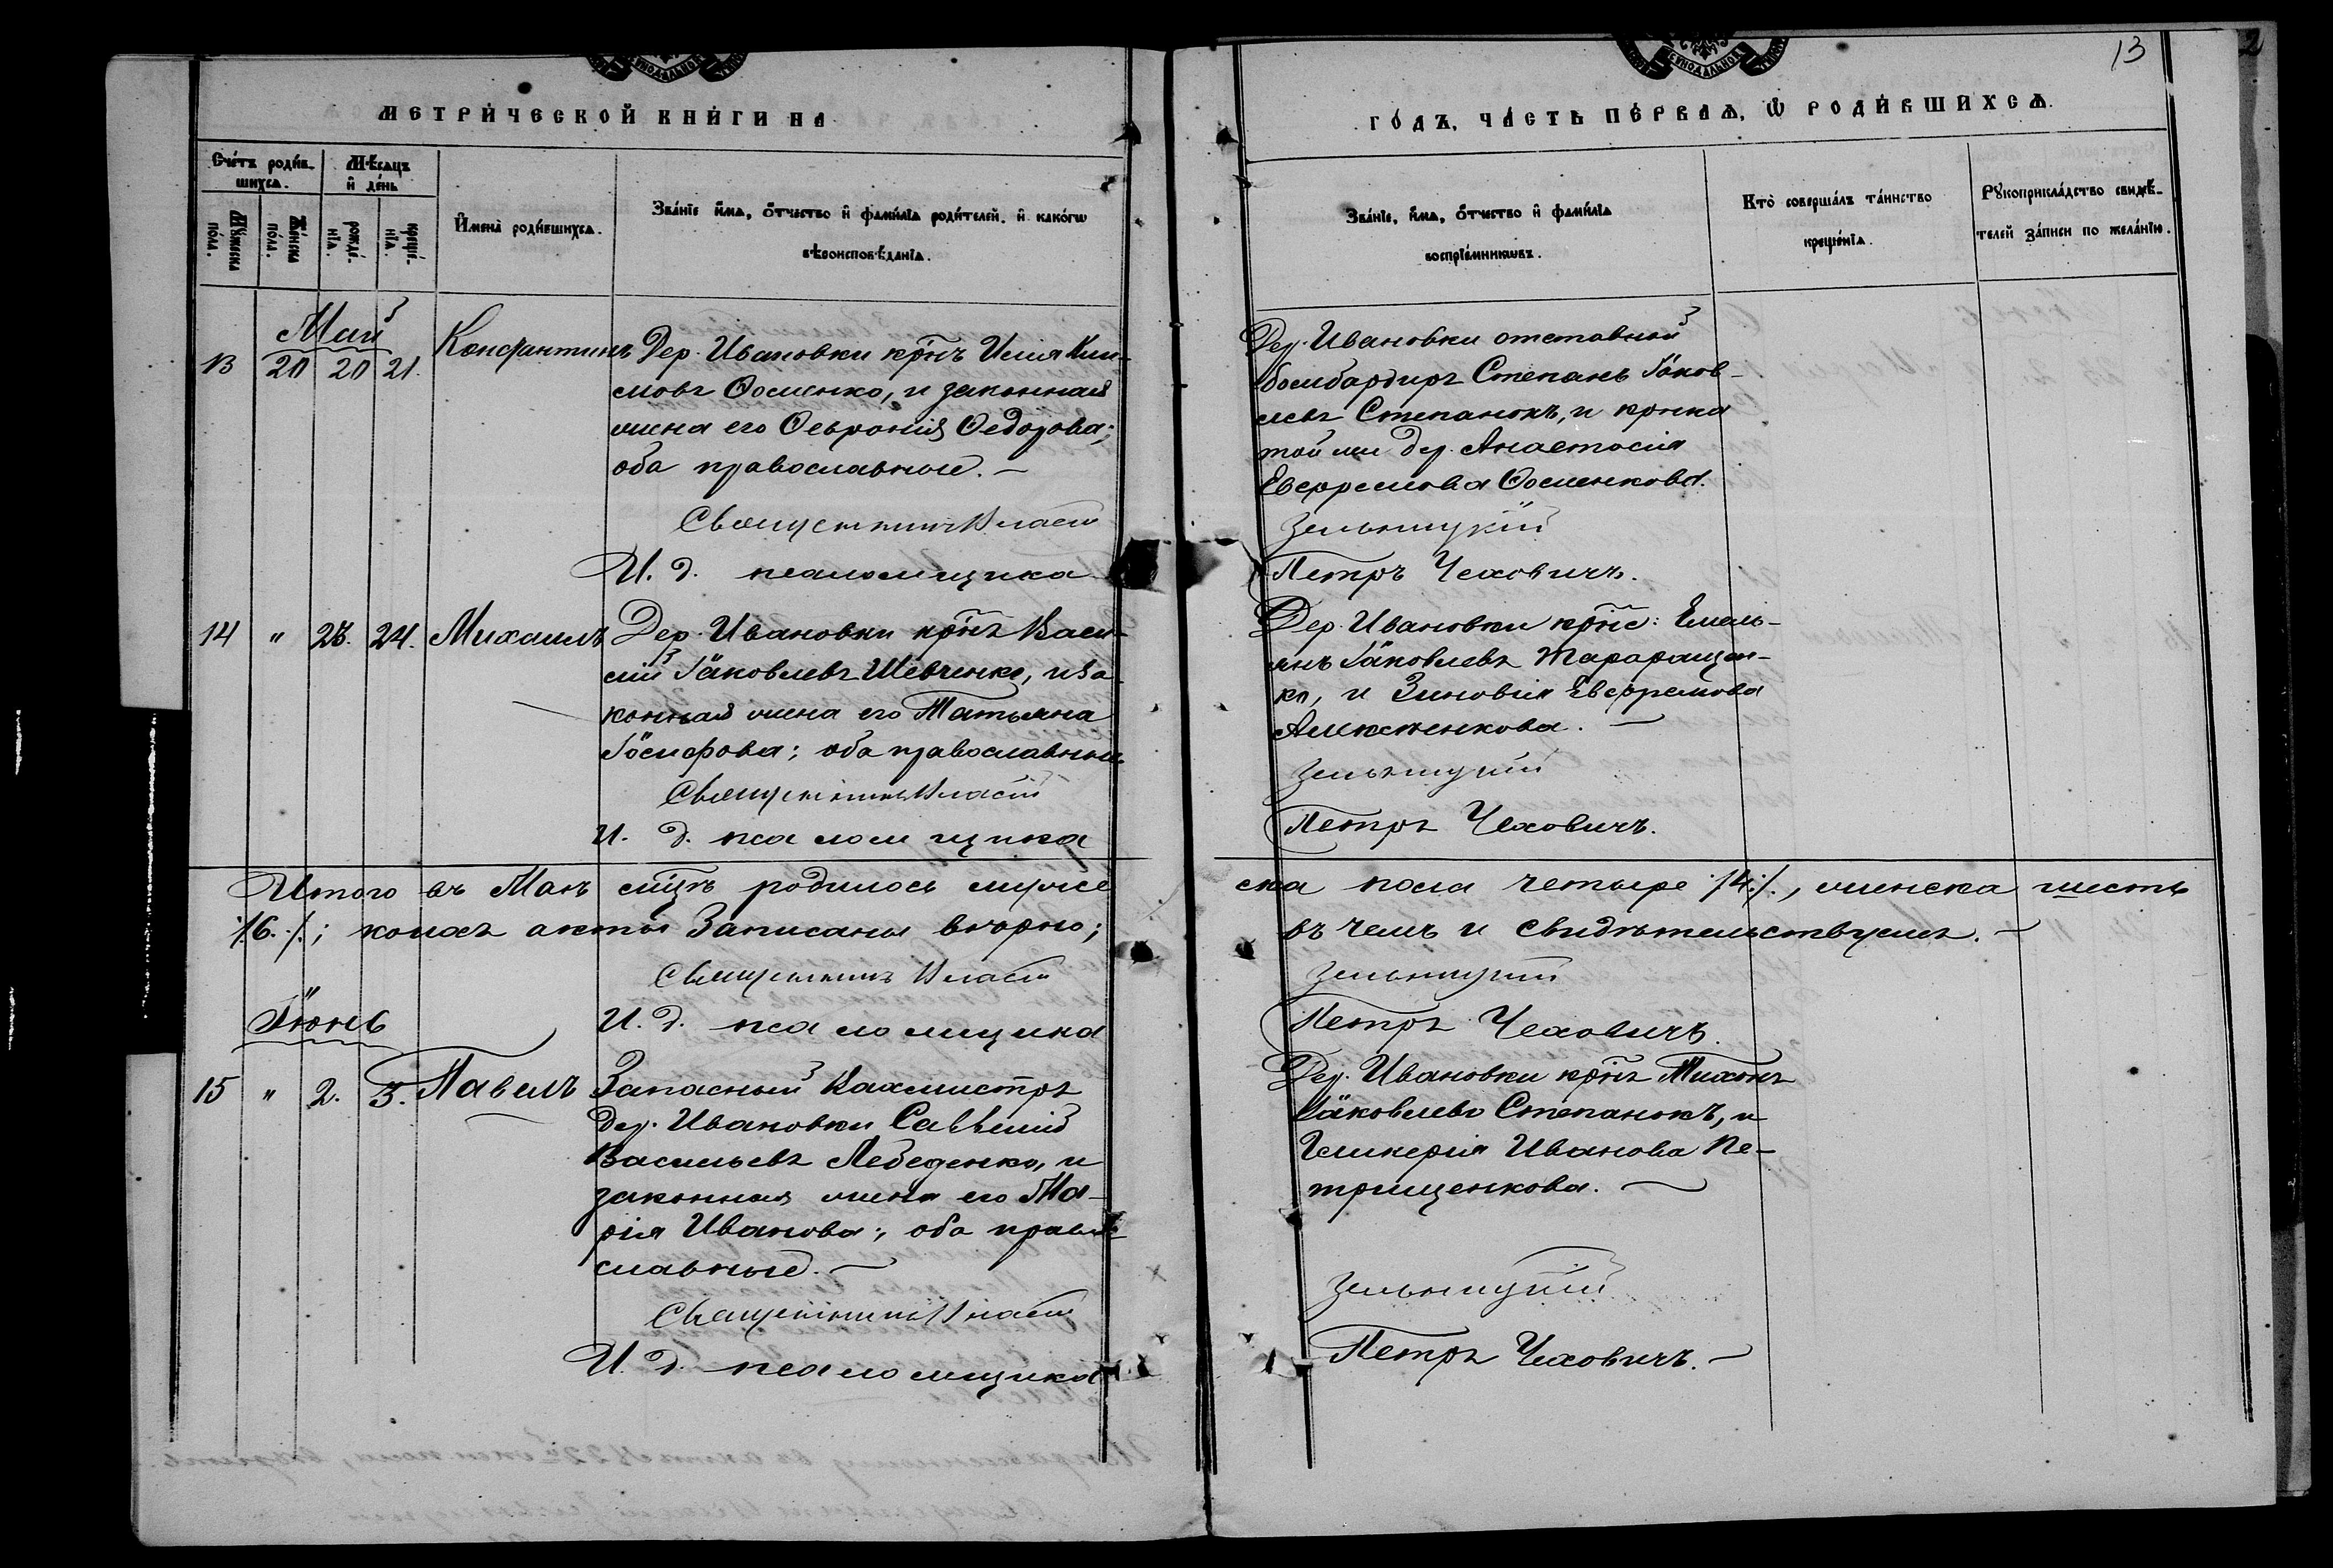 13
2
МЕТРИ́ЧЕСКОЙ КНИ́ГИ НА
ГО́ДЪ, ЧА́СТЬ ПЕ́РВАѦ, Ѡ РОДИ́ВШИХСѦ.
Сче́тъ роди́в-
шихсѧ.
Мѣ́сѧцъ
и҆ де́нь
Мꙋ́жеска
по́ла.
Же́нска
по́ла.
рожде́-
нїѧ.
креще́-
нїѧ.
И҆мена̀ роди́вшихсѧ.
Зва́нїе и҆́мѧ, ѻ҆́тчество и҆ фами́лїѧ роди́телей, и҆ како́гѡ
вѣроисповѣ́данїѧ.
Зва́нїе, и҆́мѧ, ѻ҆́тчество и҆ фами́лїѧ
воспрїе́мникѡвъ.
Кто̀ соверша́лъ та́инство
креще́нїѧ.
Рꙋкоприкла́дство свидѣ́-
телей за́писи по жела́нїю.
Май
13 20 20 21. Константинъ Дер. Ивановки крн҃ъ Илія Кли-
мовъ Ѳоменко, и законная
жена его Ѳевронія Ѳедорова;
оба православные. —
Священникъ Власій
И. д. псаломщика
Дер. Ивановки отставный
бомбардиръ Степанъ Іаков-
левъ Степанокъ, и крнка
той же дер. Анастасія
Евфремова Ѳоменкова.
Зельницкій
Петръ Чеховичъ.
14 " 23. 24. Михаилъ Дер. Ивановки крн҃ъ Васи-
лій Іаковлевъ Шевченко, и за-
конная жена его Татьяна
Іосифова; оба православные
Священникъ Власій
И. д. псаломщика
Дер. Ивановки крн҃е: Емель-
янъ Іаковлевъ Таращен-
ко, и Зиновія Евфремова
Зельницкій
Петръ Чеховичъ.
Итого въ Маѣ мц҃ѣ родилось мужеска пола четыре ./4./., женска шесть
./6./.; коихъ акты записаны вѣрно; въ чемъ и свидѣтельствуемъ. —
Священникъ Власій Зельницкій
И. д. псаломщика Петръ Чеховичъ.
Іюнь
15 " 2. 3. Павелъ Запасный Вахмистръ
дер. Ивановки Савелій
Васильевъ Лебеденко, и
законная жена его Ма-
рія Иванова; оба право-
славные. —
Священникъ Власій
И. д. псаломщика
Дер. Ивановки крн҃ъ Тихонъ
Іаковлевъ Степанокъ, и
Гликерія Иванова Пе-
трищенкова. —
Зельницкій
Петръ Чеховичъ. —